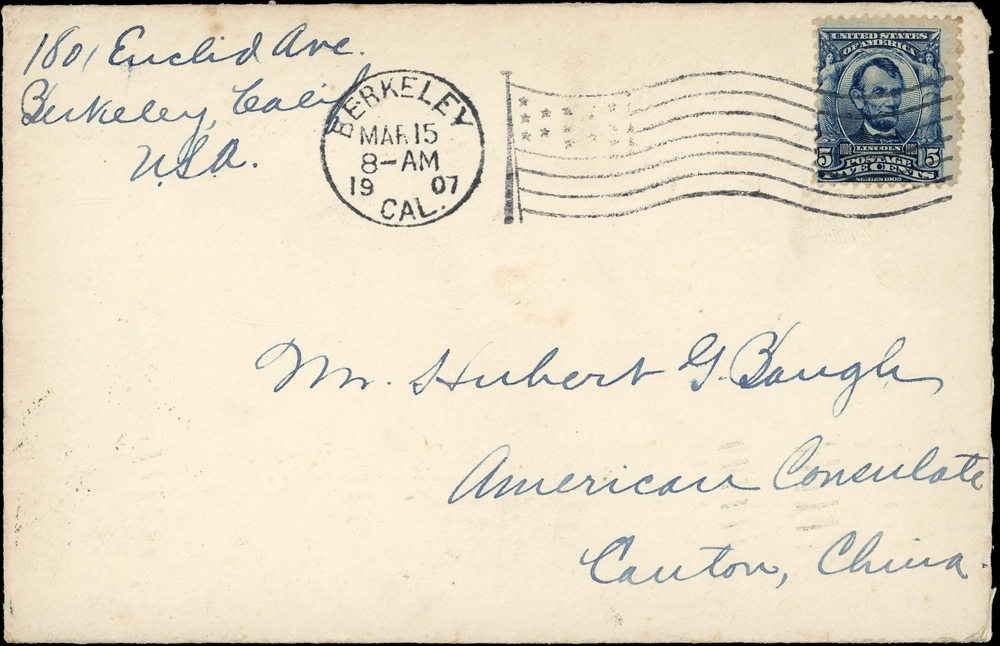 1801 Euclid Ave.
Berkeley, Calif
U.S.A.
BERKELEY
MAR 15
8-AM
19 07
CAL.
UNITED STATES
OF AMERICA
LINCOLN
5 5
POSTAGE
FIVE CENTS
SERIES 1902
Mr. Hubert G. Baugh
American Consulate
Canton, China.